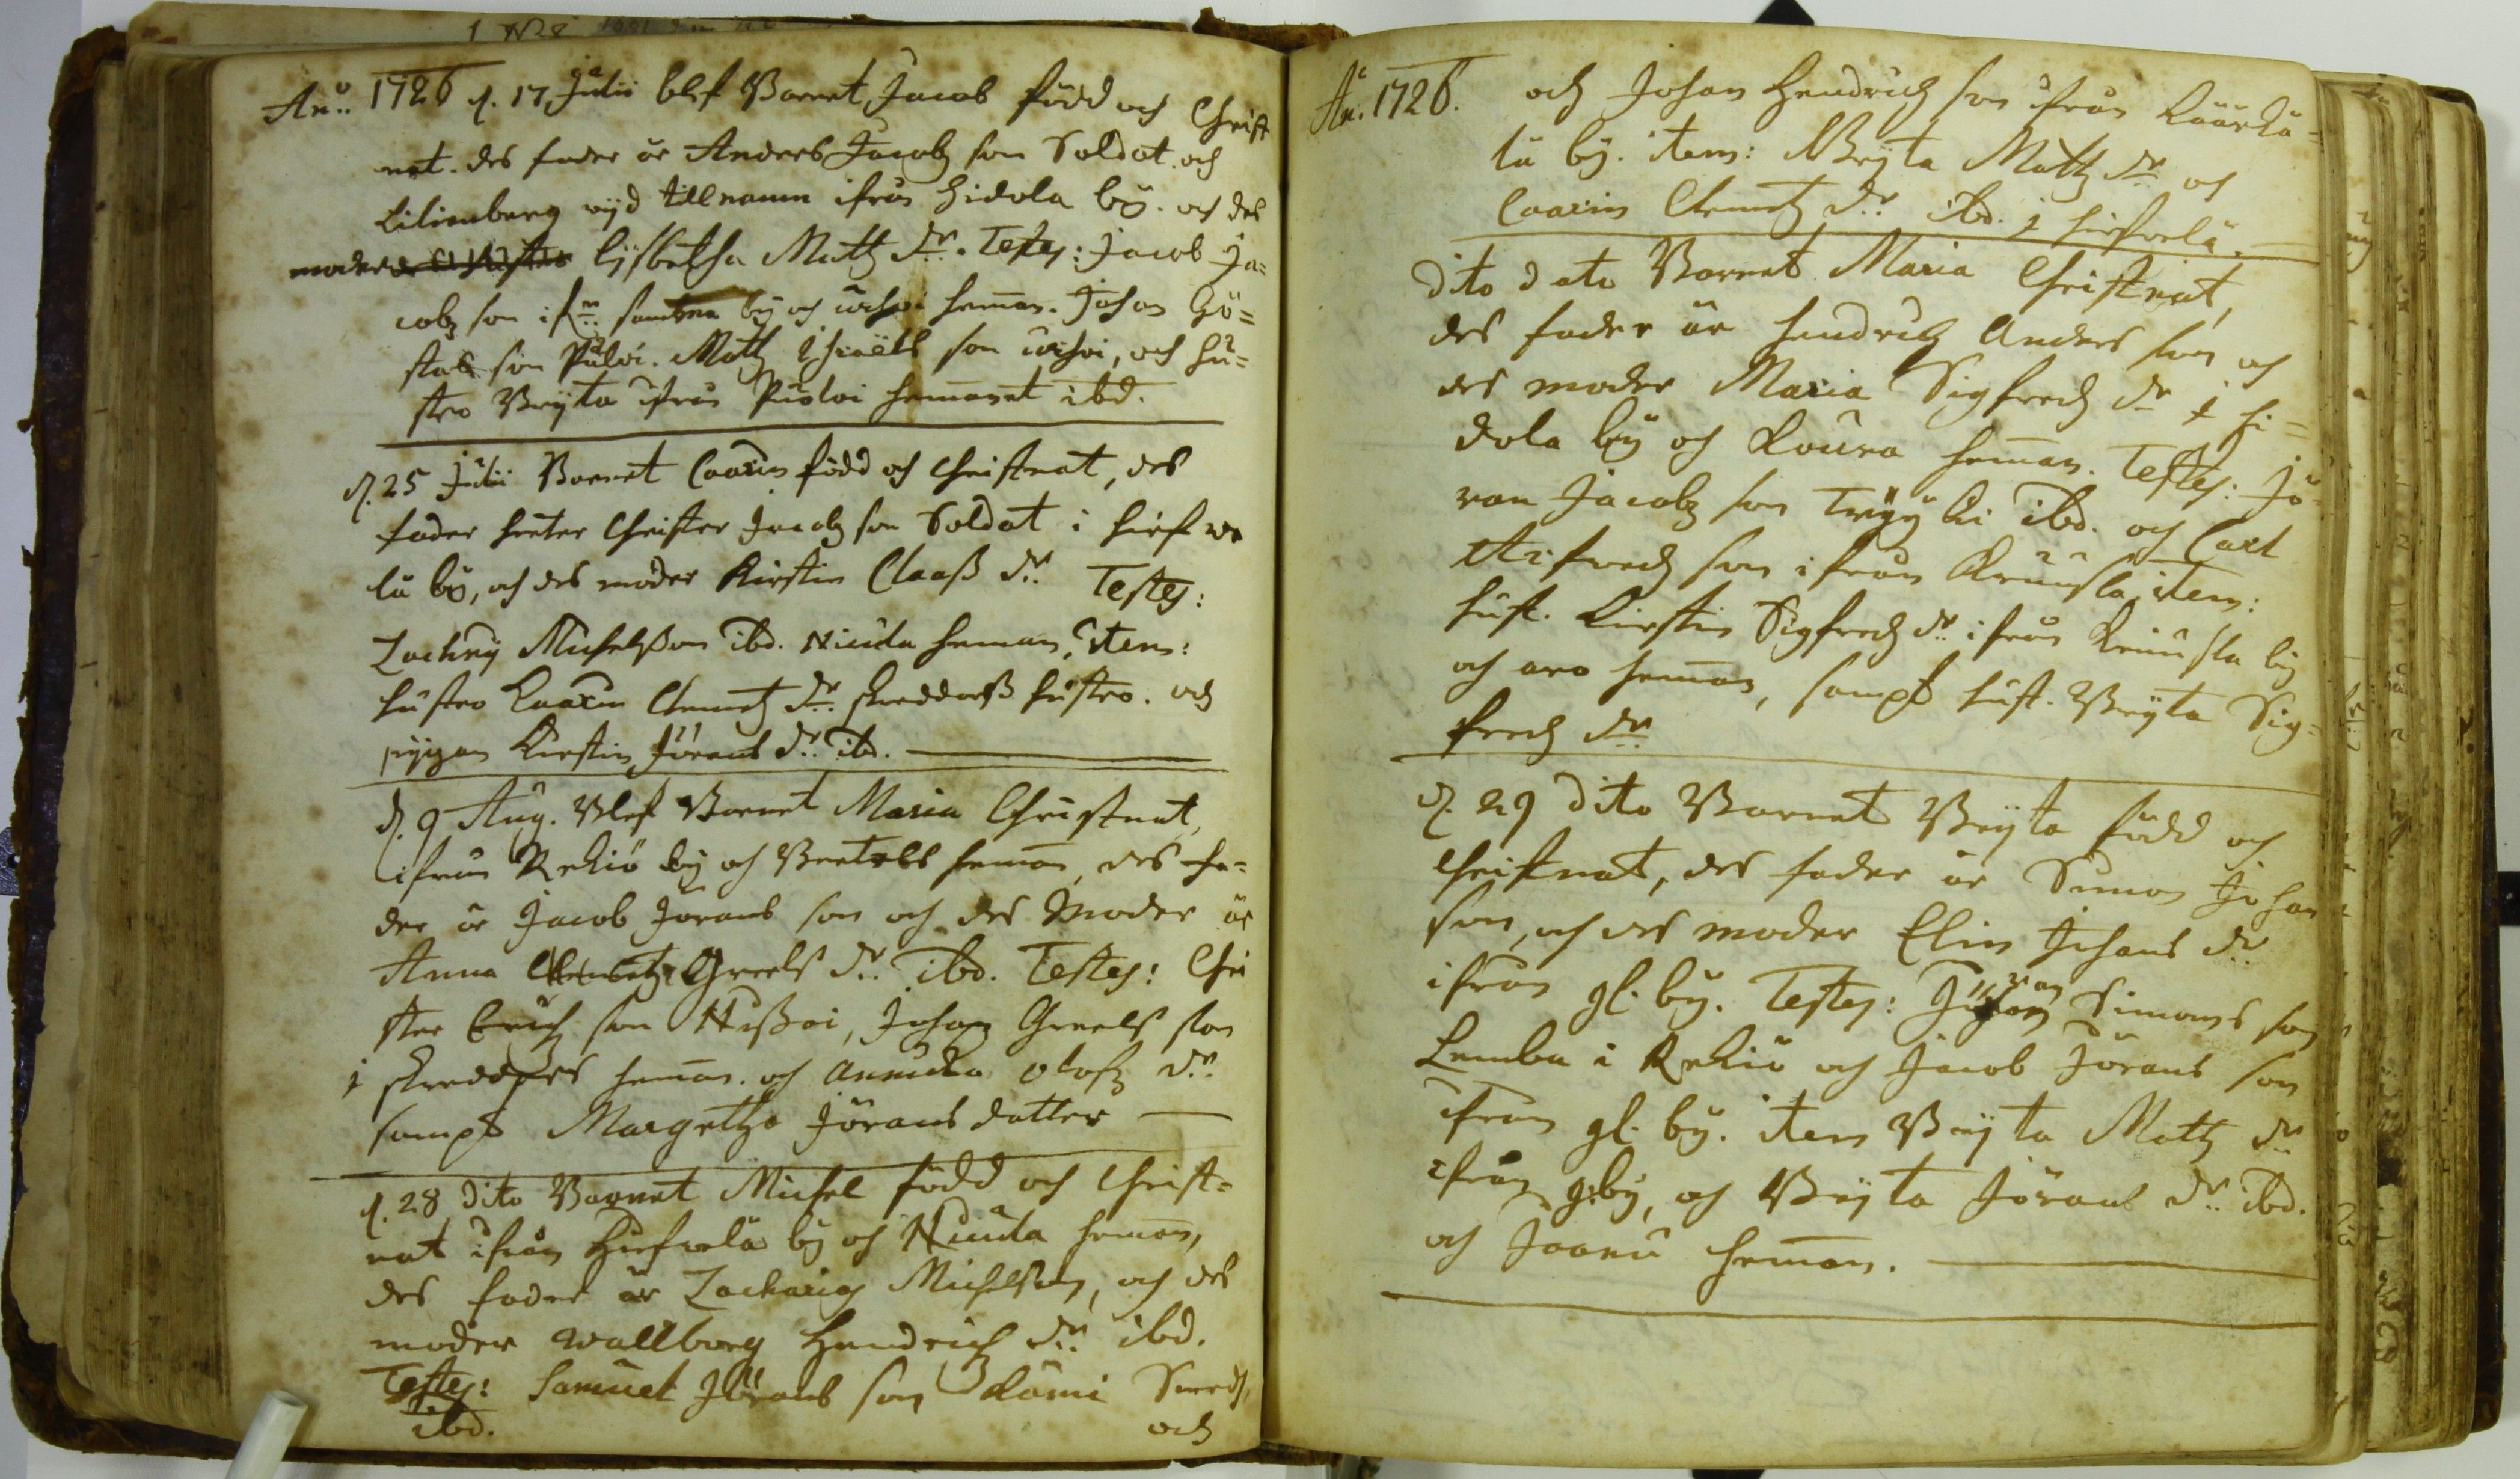 An: 1726 d. 17 Julii blef Barnet Jacob född och Christ
nat. des fader är Anders Jacobz son Soldat och
Lilienberg wijd tillnamn ifrån Hidola by. och des
moder Lijsbetha Matz dr. Testes: Jacob Ja=
cobz son i samma by och heman. Johan Gö=
stas son Pålvi. Matz son, och hu=
stro Bryta ifrån hemanet ibd.
d. 25 Julii Barnet Caarin född och Christnat, des
fader heeter Christer Jacobz son Soldat i Hirf we
lä by, och des moder Kirstin Claaß dr. Testes:
Zachris Michelsson ibd. Niuda heman, item:
hustro Caarin Clemetz dr. skreddarß hustro. och
pijgan Kirstin Jörans dr. ibd.
d. 9 Aug. Blef Barnet Maria Christnat,
ifrån Rekiö by och Bertels heman, des fa=
der är Jacob Jörans son och des Moder är
Anna Greels dr. ibd. Testes: Chri
ster Erichz son Nißoi, Johan Greels son
i skreddars heman. och Annicka Olofz dr.
sampt Margetha Jörans dotter
d. 28 dito Barnet Michel född och Christ=
nat ifrån Hirfwelä by och Niuda heman,
des fader är Zacharias Michelson, och des
moder Wallborg Hendrich dr. ibd.
Testes: Samuel Jörans son Rämi Smeds,
ibd.
och
An. 1726. och Johan Hendrich son ifrån
lä by. item: Bryta Matz dr och
Caarin Clemetz dr. ibd. i Hirfwelä.
dito dato Barnet Maria Christnat,
des fader är Hendrich Anders son och
des moder Maria Sigfredz dr i Hi=
dola by och Koura heman. Testes: Jö=
ran Jacobz son ibd. och Carl
Arfredz son ifrån item:
hust. Kirstin Sigfredz dr. ifrån by
och aro heman, sampt hust. Bryta Sig=
fredz dr.
d. 29 dito Barnet Bryta född och
Christnat, des fader är Simon Johan
son, och des moder Elin Johans dr.
ifrån gl. by. Testes: Jöran Simons son
Lemba i Rekiö och Jacob Jörans son
ifrån gl. by. item Bryta Matz dr.
ifrån g. by, och Bryta Jörans dr. ibd.
och Jaanu heman.